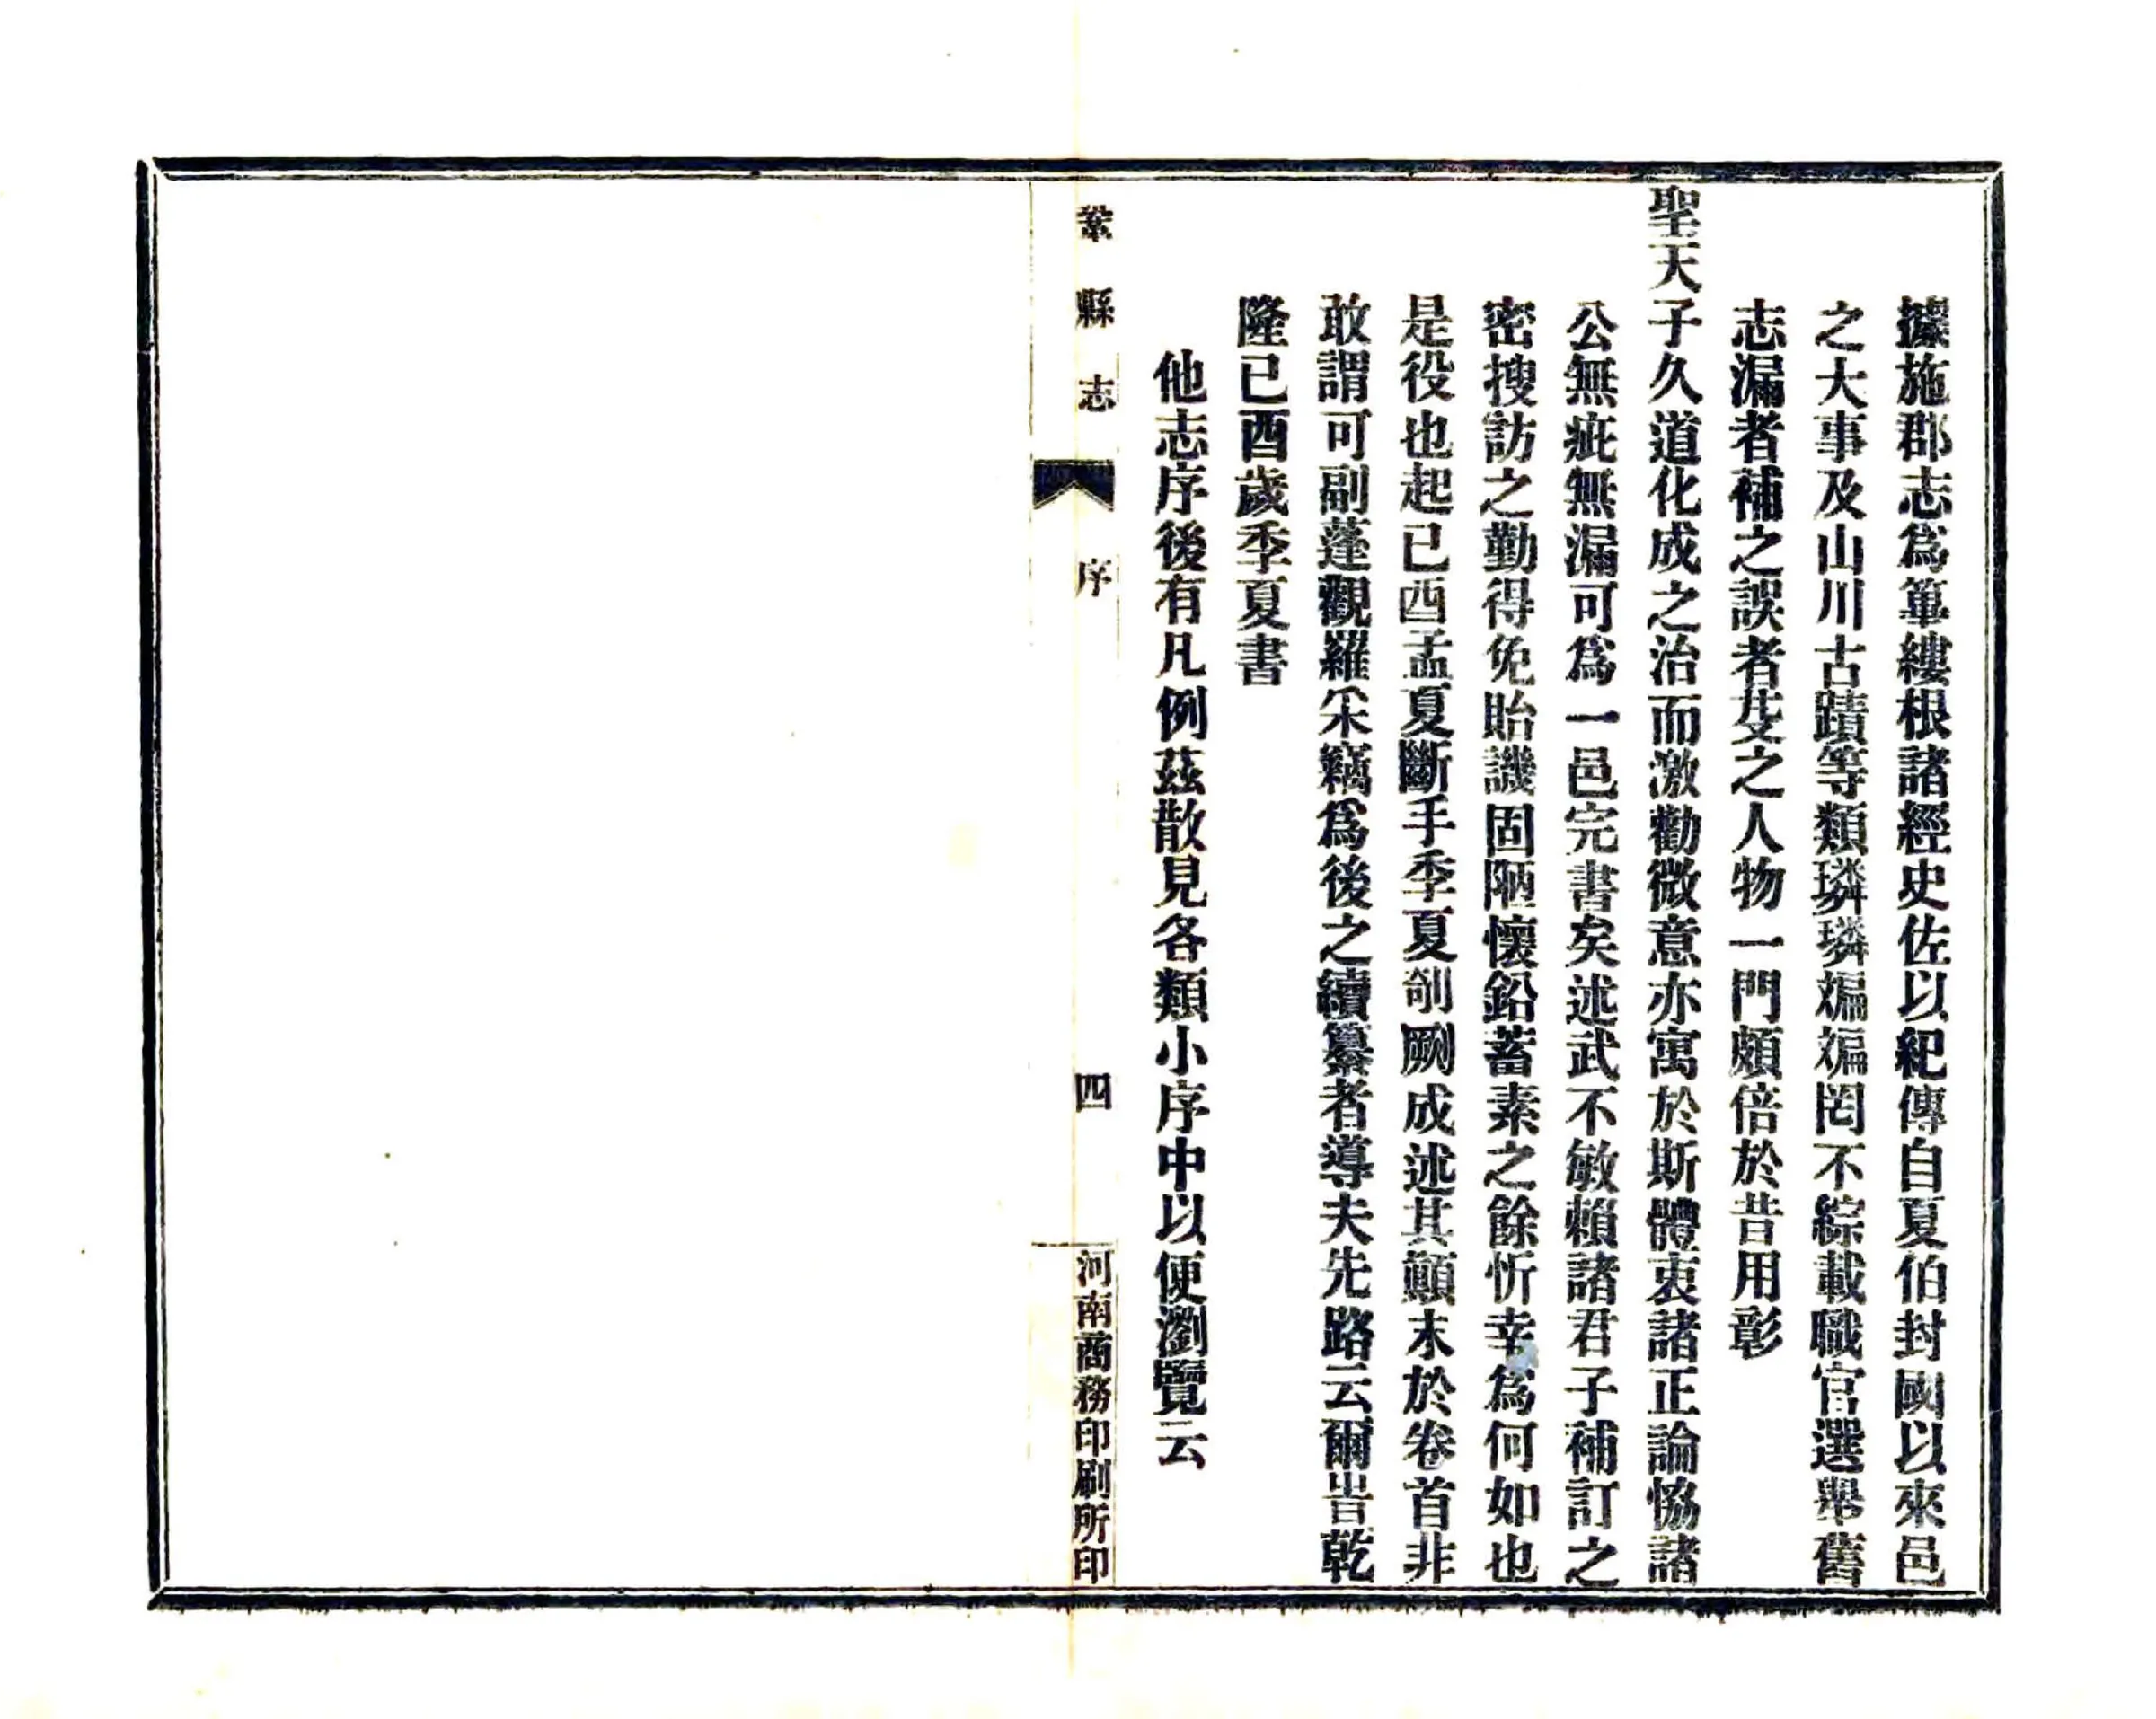 據施郡志爲篳縷根諸經史佐以紀傳自夏伯封國以來邑
之大事及山川古蹟等類璘璘斒斒罔不綜載職官選舉舊
志漏者補之誤者芟之人物一門頗倍於昔用彰
聖天子久道化成之治而激勸微意亦寓於斯體衷諸正論恊諸
公無疵無漏可爲一邑完書矣述武不敏賴諸君子補訂之
密搜訪之勤得免貽譏固陋懷鉛蓄素之餘忻幸爲何如也
是役也起己酉孟夏斷手季夏剞劂成述其顛末於卷首非
敢謂可副蓬觀羅采竊爲後之續纂者導夫先路云爾旹乾
隆已酉歲季夏書
他志序後有凡例茲散見各類小序中以便瀏覽云
鞏縣志
序
四
河南商務印刷所印